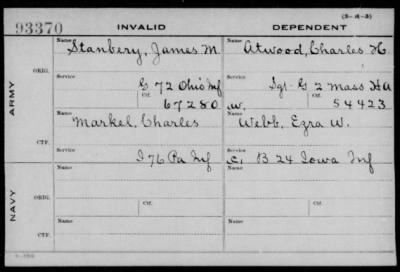 (3-4-3)
93370 INVALID DEPENDENT
Name Name
Stanbery, James M. Atwood, Charles H.
ARMY
ORIG.
Service Service
G 72 Ohio Inf Sgt G 2 Mass HA
Ctf. Ctf.
67280 W. 54423
Name Name
Markel, Charles Webb, Ezra W.
CTF.
Service Service
I 76 Pa Inf C. B 24 Iowa Inf
NAVY
Name Name
ORIG.
Service Service
Ctf. Ctf.
Name Name
CTF.
Service Service